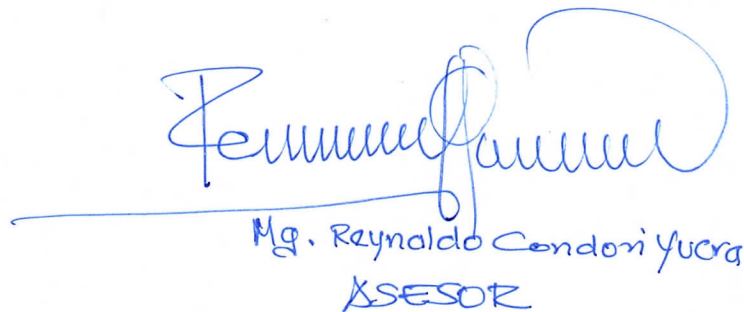 Mg. Reynaldo Condori Yucra
ASESOR